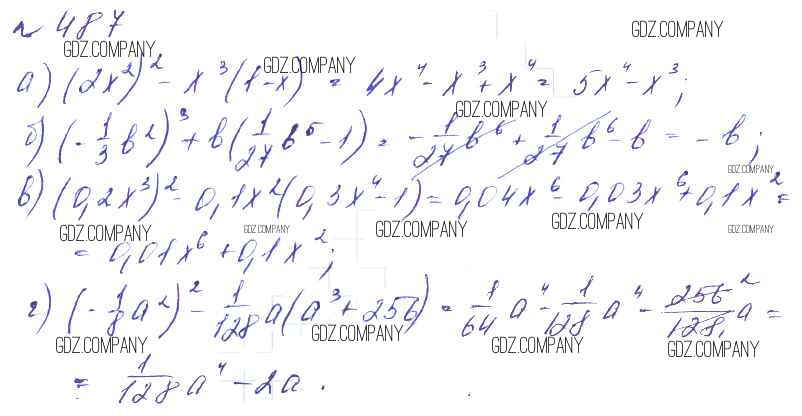 № 487
GDZ.COMPANY GDZ.COMPANY
а) (2x²)² - x³(1-x) = 4x⁴ - x³ + x⁴ = 5x⁴ - x³;
GDZ.COMPANY GDZ.COMPANY
б) (-1/3 b²)³ + b(1/27 b⁵ - 1) = -1/27 b⁶ + 1/27 b⁶ - b = -b;
GDZ.COMPANY
в) (0,2x³)² - 0,1x²(0,3x⁴ - 1) = 0,04x⁶ - 0,03x⁶ + 0,1x² =
GDZ.COMPANY GDZ.COMPANY GDZ.COMPANY GDZ.COMPANY GDZ.COMPANY
= 0,01x⁶ + 0,1x²;
г) (-1/8 a²)² - 1/128 a(a³ + 256) = 1/64 a⁴ - 1/128 a⁴ - 256/128 a =
2
GDZ.COMPANY GDZ.COMPANY GDZ.COMPANY GDZ.COMPANY
= 1/128 a⁴ - 2a.